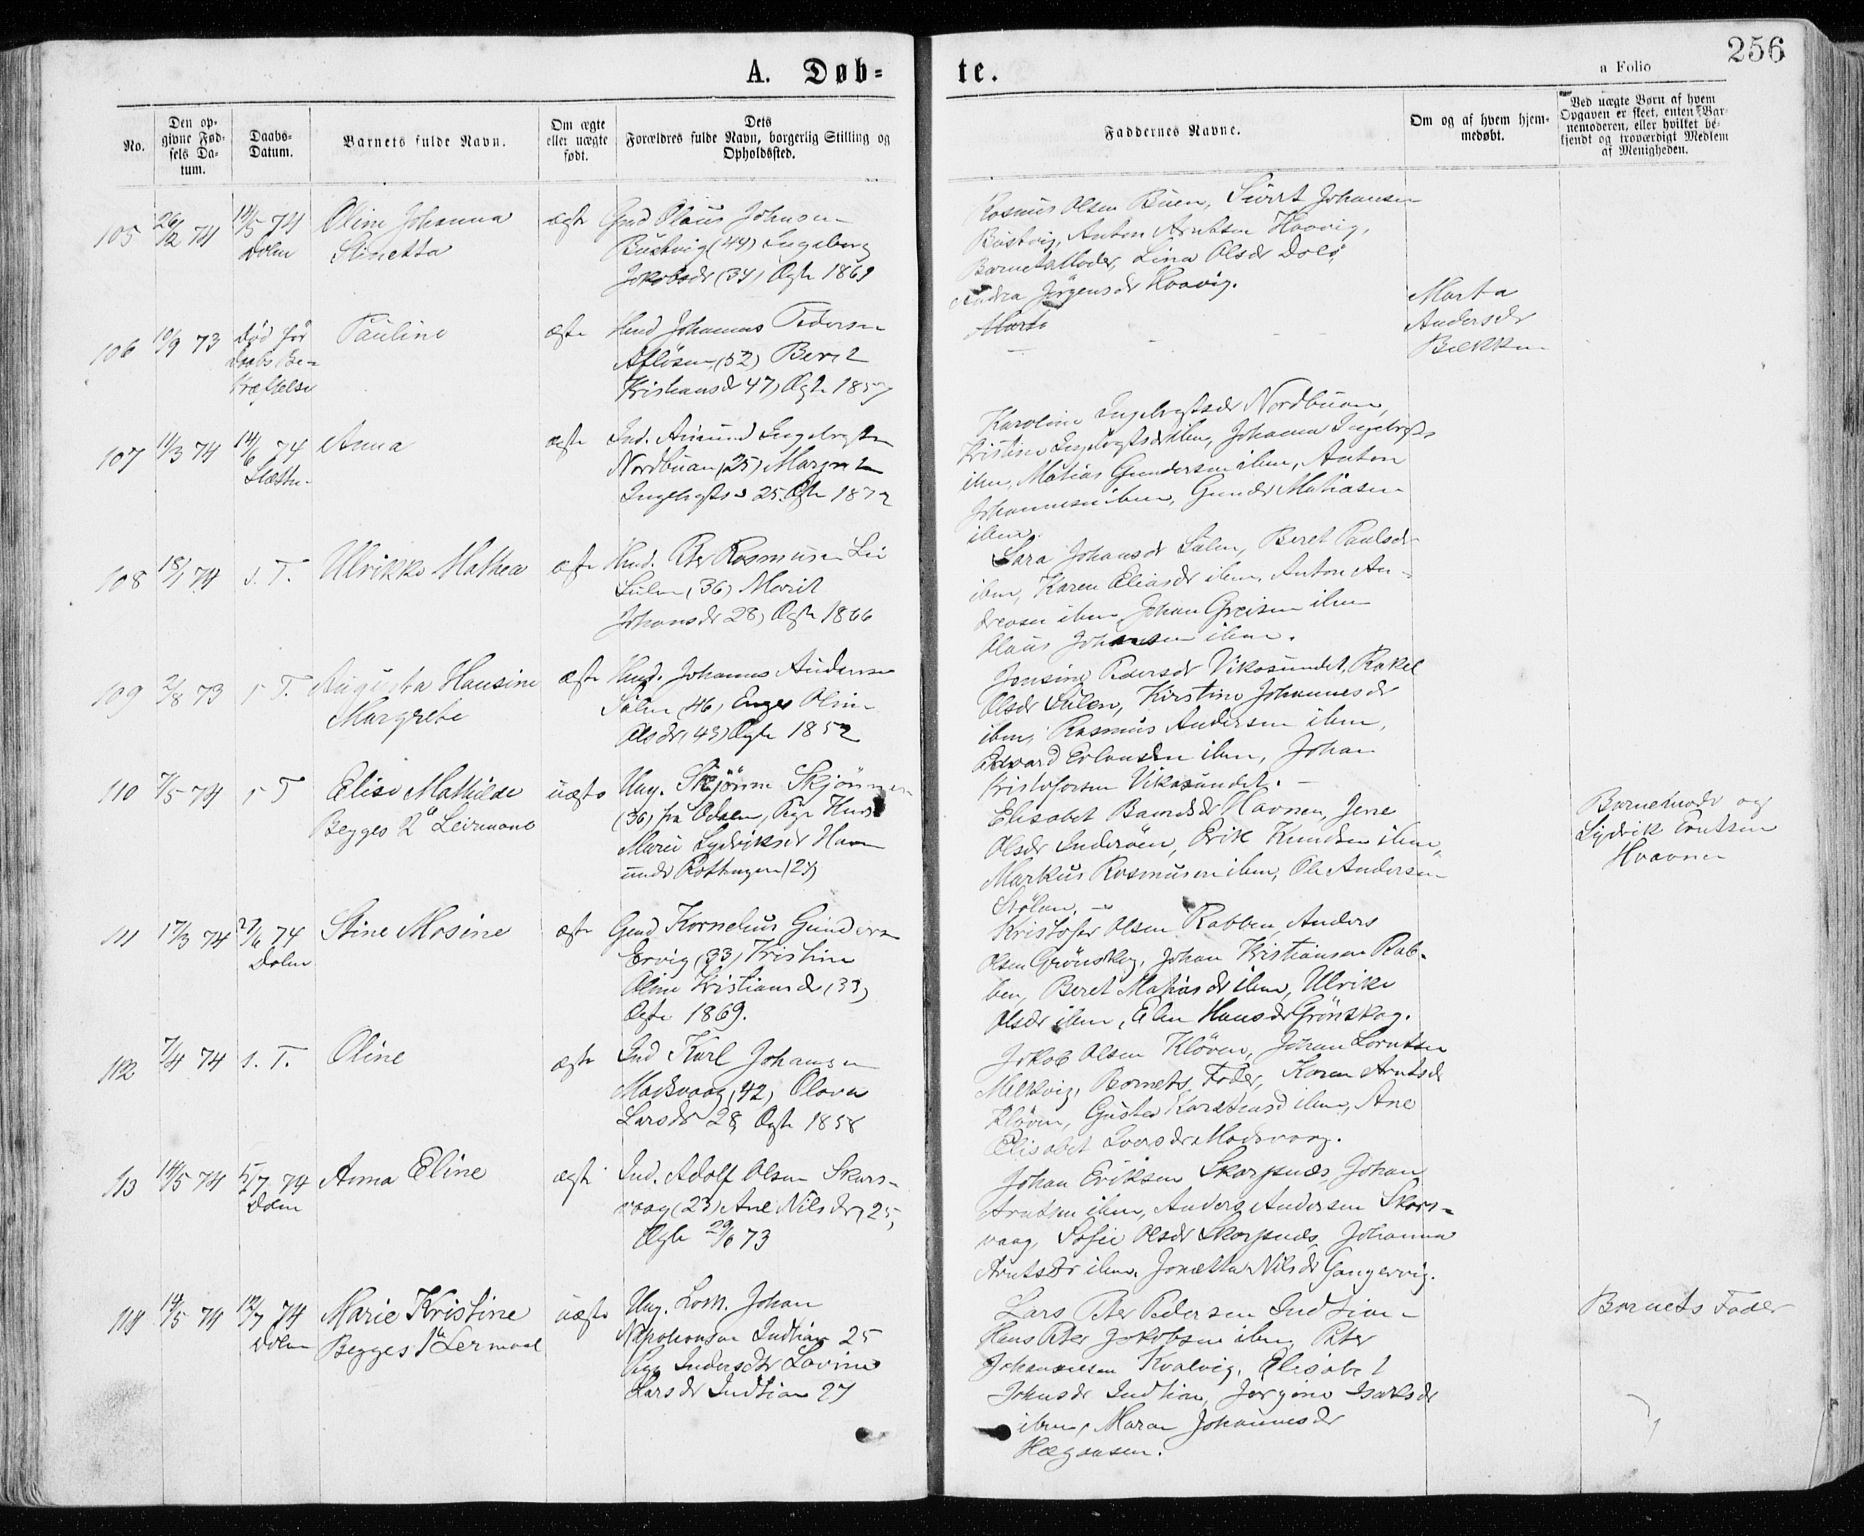 256
A. Døb-
te.
a Folio
No.
Den op-
givne Fød-
sels Da-
tum.
Daabs-
Datum.
Barnets fulde Navn.
Om ægte
eller uægte
født.
Dets
Forældres fulde Navn, borgerlig Stilling og
Opholdssted.
Faddernes Navne.
Om og af hvem hjem-
medøbt.
Ved uægte Børn af hvem
Opgaven er skeet, enten Bar-
nemoderen, eller hvilket be-
kjendt og troværdigt Medlem
af Menigheden.
105 26/2 74 14/5 74
Dolm
Oline Johanna
ægte
Gmd Olaus Johnsen
Bustvig (44) Ingeborg
Jakobsdr (34) Ægte 1869
Rasmus Olsen Buen, Sivert Johansen
Bustvig, Anton Arntsen Haavig,
Barnets Moder, Lina Olsdr Dolø
Andrea Jørgensdr Haavig.
106 10/9 73 Død før
Daabs Be-
kræftelse
Pauline
ægte
Hmd Johannes Pedersen
(52) Beret
Kristiansdr 47) Ægte 1857
Marta
Marta
Andersdr
Bækken
107 11/3 74 14/6 74
Anna
ægte
Ind. Amund Ingebrigtsen
Nordbuan (25) Margrete
Ingebrigtsd 25. Ægte 1872
Karoline Ingebrigtsdr Nordbuan,
Kristine Ingebrigtsdr ibm, Johanna Ingebrigtsd
ibm, Matias Gundersen ibm, Anton
Johannesen ibm, Gunder Matiasen
ibm.
108 18/1 74 s. T.
Ulrikke Mathea
ægte
Hmd. Peter Rasmusen
Sulen (36) Marit
Johansdr 28) Ægte 1866
Sara Johansdr Sulen, Beret Paulsdr
ibm, Karen Eliasdr ibm, Anton An-
dreasen ibm, Johan Greisen ibm
Olaus Johansen ibm.
109 2/8 73 s T.
Augusta Hansine
Margrete
ægte
Hmd. Johannes Andersen
Sulen (46) Enges Oline
Olsdr (43) Ægte 1852
Jonsine Pedersdr Vikasundet, Rakel
Olsdr Sulen, Kirstine Johannesdr
ibm, Rasmus Andersen ibm,
Edvard Erlandsen ibm, Johan
Kristofersen Vikasundet. —
110 7/5 74 s T
Elise Mathilde
Begges 2° Leirmaal
uægte
Ung. Skjønne Skjønnesen
(36) fra Odalen, Pige
Marie Lydriksdr Havn
(24)
Elisabet Havnen, Jene
Olsdr Inderøen, Erik Knudsen ibm,
Markus Rasmusen ibm, Ole Andersen
Stølan. —
Barnemode og
Lydrik Trutsen
Havnen
111 17/3 74 27/6 74
Dolm
Stine Mosine
ægte
Gmd Kornelius Gundersen
Ervig (33) Kristine
Oline Kristiansdr (33)
Ægte 1869.
Kristofer Olsen Rabben, Anders
Olsen Grønskag, Johan Kristiansen Rab-
ben, Beret Matiasdr ibm, Ulrike
Olsdr ibm, Elen Hansdr Grønskag.
112 7/4 74 s. T.
Oline
ægte
Ind Karl Johansen
Madsvaag (42) Olava
Larsdr 28, Ægte 1858
Jakob Olsen Kløven, Johan Lorntsen
Melkvig, Barnets Fader, Karen Arntsdr
Kløven, ibm, Ane
Elisabet Iversdr Madsvaag.
113 14/5 74 5/7 74
Dolm
Anna Eline
ægte
Ind. Adolf Olsen Skars-
vaag (23) Ane Nilsdr 25,
Ægte 29/6 73
Johan Eriksen Skarpnæs, Johan
Arntsen ibm, Anders Andersen Skars-
vaag, Sofie Olsdr Skarpnæs, Johanna
Arntsdr ibm, Jonetta Nilsdr Gangervig.
114 14/5 74 12/7 74
Dolm
Marie Kristine
Begges 1° Lermaal
uægte
Ung. Losk. Johan
Napoleonsen Indlian 25
Pige Lovine
Larsdr Indlian 27
Lars Peter Pedersen Indlian
Hans Peter Jakobsen ibm, Peter
Johannesen Kvalvig, Elisabet
Johnsdr Indlian, Jørgine Isaksdr
ibm, Maren Johannesdr
Barnets Fader